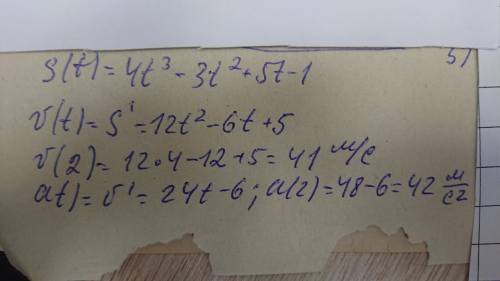 5)
S(t)=4t³-3t²+5t-1
v(t)=S'=12t²-6t+5
v(2)=12•4-12+5=41 м/с
at)=v'=24t-6; a(2)=48-6=42 м/с2